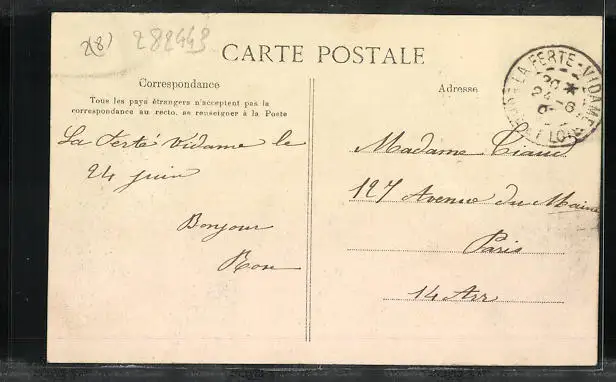 2(8) 282443
CARTE POSTALE
LA FERTE-VIDAME
20 *
24-6
Correspondance
Adresse
Tous les pays étrangers n'acceptent pas la
correspondance au recto, se renseigner à la Poste
La Ferté Vidame le
24 juin
Bonjour
Madame
127 Avenue du Maine
Paris
14 Arr